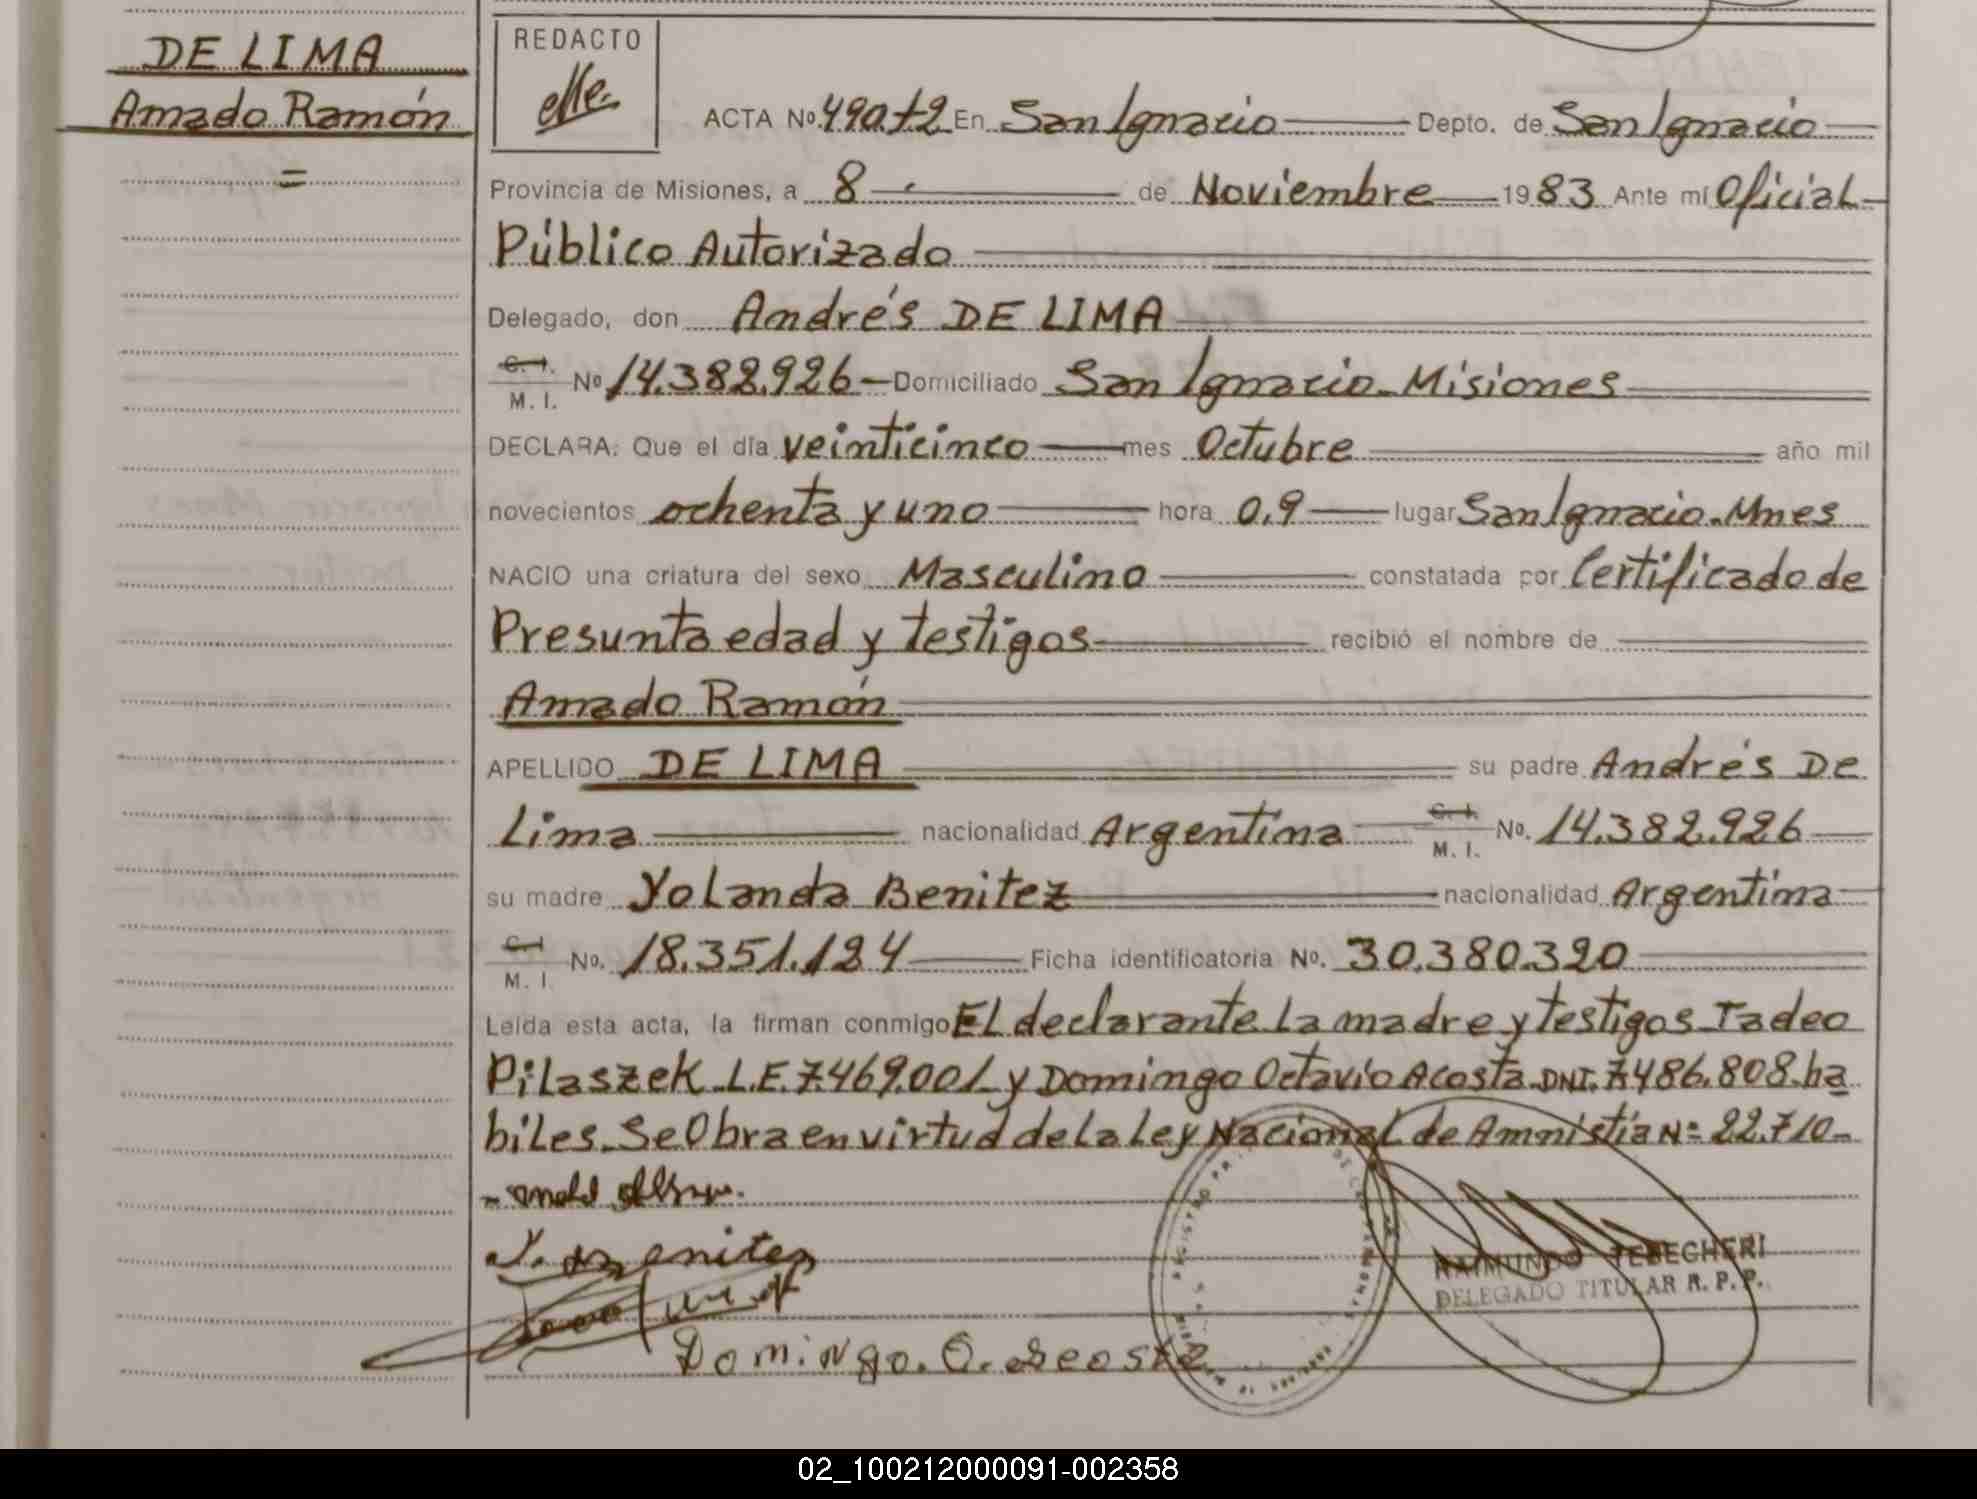 DE LIMA
Amado Ramón
=
REDACTO
ACTA Nº 490 t2 En San Ignacio Depto. de San Ignacio
Provincia de Misiones, a 8 de Noviembre 1983 Ante mí Oficial
Público Autorizado
Delegado, don Andrés DE LIMA
C. I. M. I. Nº 14.382.926 Domiciliado San Ignacio - Misiones
DECLARA: Que el día veinticinco mes Octubre año mil
novecientos ochenta y uno hora 0.9 lugar San Ignacio - Mnes
NACIO una criatura del sexo Masculino constatada por Certificado de
Presunta edad y testigos recibió el nombre de
Amado Ramón
APELLIDO DE LIMA su padre Andrés De
Lima nacionalidad Argentina C. I. M. I. No. 14.382.926
su madre Yolanda Benitez nacionalidad Argentina
C. I. M. I. No. 18.351.124 Ficha identificatoria Nº. 30.380.320
Leída esta acta, la firman conmigo El declarante La madre y testigos Tadeo
Pilaszek L.E. 7.469.001 y Domingo Octavio Acosta DNI. 7.486.808. ha
biles. Se Obra en virtud de la Ley Nacional de Amnistia Nº 22.710-
Y. Benitez
Domingo. O. Acosta
RAIMUNDO TEBECHERI
DELEGADO TITULAR R. P. P.
02_100212000091-002358